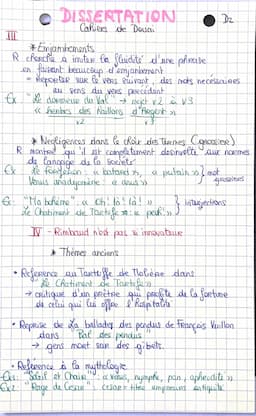 DISSERTATION
D2
Cahiers de Douai
III
* Enjambements
R cherche à imiter la fluidité d'une phrase
en faisant beaucoup d'enjambement
= Reporter sur le vers suivant, des mots nécessaires
au sens du vers précédent
Ex: "Le dormeur du Val" → rejet v2 à v3
« herbes des haillons d'Argent »
v2 v3
* Négligences dans le choix des Thermes (grossiers)
R montre qu'il est complètement désinvolte aux normes
de langage de la société
Ex: Le forgeron: « batards », « putain » } mot
Vénus anadyomène: « anus » } grossiers
Ex: "Ma bohème": « oh! là! là! » } interjections
Le Chatiment de Tartufe: « peuh »
IV - Rimbaud n'est pas si innovateur
* Thèmes anciens
• Référence au Tartuffe de Molière dans
Le Chatiment de Tartufe
→ critique d'un prêtre qui profite de la fortune
de celui qui lui offre l'hospitalité
• Reprise de La ballade des pendus de François Villon
dans "Bal des pendus"
→ gens mort sur des gibets.
• Référence à la mythologie
Ex1: "Soleil et Chair": « vénus, nymphe, pan, aphrodite »
Ex2: "Rage de César": césar = titre empereurs antiquité